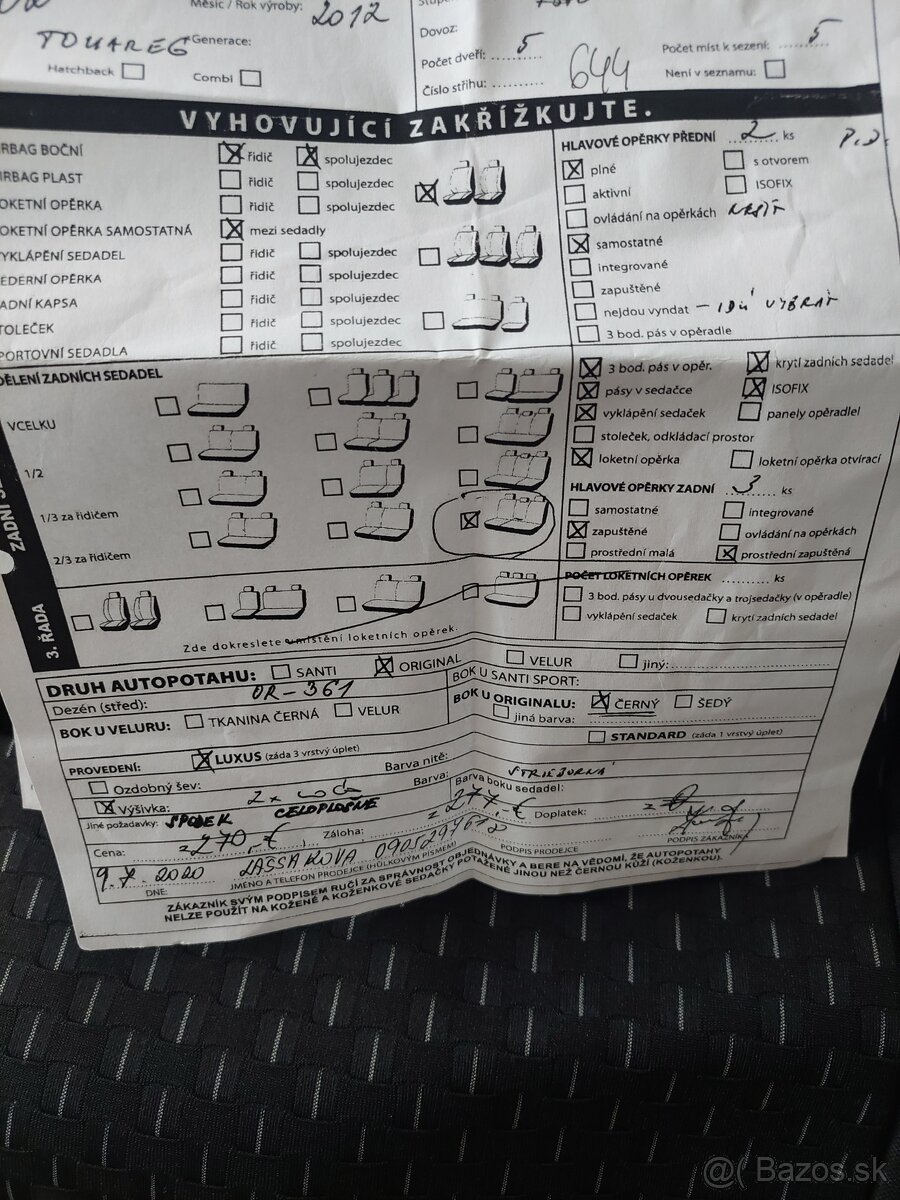 Měsíc / Rok výroby: 2012
TOUAREG Generace:
Hatchback Combi
Dovoz:
Počet dveří: 5
Číslo střihu: 644
Počet míst k sezení: 5
Není v seznamu:
VYHOVUJÍCÍ ZAKŘÍŽKUJTE.
RBAG BOČNÍ řidič spolujezdec
RBAG PLAST řidič spolujezdec
OKETNÍ OPĚRKA řidič spolujezdec
OKETNÍ OPĚRKA SAMOSTATNÁ mezi sedadly
YKLÁPĚNÍ SEDADEL řidič spolujezdec
EDERNÍ OPĚRKA řidič spolujezdec
ADNÍ KAPSA řidič spolujezdec
TOLEČEK řidič spolujezdec
PORTOVNÍ SEDADLA řidič spolujezdec
HLAVOVÉ OPĚRKY PŘEDNÍ 2 ks
plné s otvorem
aktivní ISOFIX
ovládání na opěrkách
samostatné
integrované
zapuštěné
nejdou vyndat - IDÚ VYBRAŤ
3 bod. pás v opěradle
DĚLENÍ ZADNÍCH SEDADEL
VCELKU
1/2
1/3 za řidičem
2/3 za řidičem
ZADNÍ
3. ŘADA
3 bod. pás v opěr. krytí zadních sedadel
pásy v sedačce ISOFIX
vyklápění sedaček panely opěradlel
stoleček, odkládací prostor
loketní opěrka loketní opěrka otvírací
HLAVOVÉ OPĚRKY ZADNÍ 3 ks
samostatné integrované
zapuštěné ovládání na opěrkách
prostřední malá prostřední zapuštěná
POČET LOKETNÍCH OPĚREK ks
3 bod. pásy u dvousedačky a trojsedačky (v opěradle)
vyklápění sedaček krytí zadních sedadel
Zde dokreslete umístění loketních opěrek.
DRUH AUTOPOTAHU: SANTI ORIGINAL VELUR jiný:
Dezén (střed): OR-361 BOK U SANTI SPORT:
BOK U VELURU: TKANINA ČERNÁ VELUR BOK U ORIGINALU: ČERNÝ ŠEDÝ
jiná barva:
PROVEDENÍ: LUXUS (záda 3 vrstvý úplet) STANDARD (záda 1 vrstvý úplet)
Ozdobný šev: Barva nitě:
Výšivka: 2x Barva: STRIEBORNÁ Barva boku sedadel:
Jiné požadavky: SPODEK CELOPLOŠNE
Cena: 270,-€ Záloha: 277,-€ Doplatek:
9.7.2020 LASSAKOVA
DNE: JMÉNO A TELEFON PRODEJCE (HŮLKOVÝM PÍSMEM) PODPIS PRODEJCE PODPIS ZÁKAZNÍKA
ZÁKAZNÍK SVÝM PODPISEM RUČÍ ZA SPRÁVNOST OBJEDNÁVKY A BERE NA VĚDOMÍ, ŽE AUTOPOTAHY
NELZE POUŽÍT NA KOŽENÉ A KOŽENKOVÉ SEDAČKY POTAŽENÉ JINOU NEŽ ČERNOU KŮŽÍ (KOŽENKOU).
@( Bazos.sk